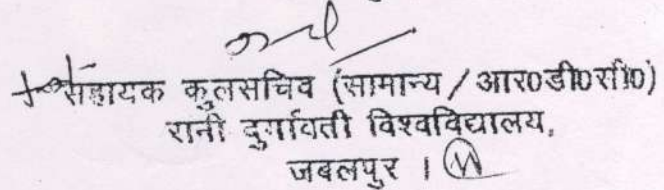 सहायक कुलसचिव (सामान्य / आर०डी०सी०)
रानी दुर्गावती विश्वविद्यालय,
जबलपुर ।